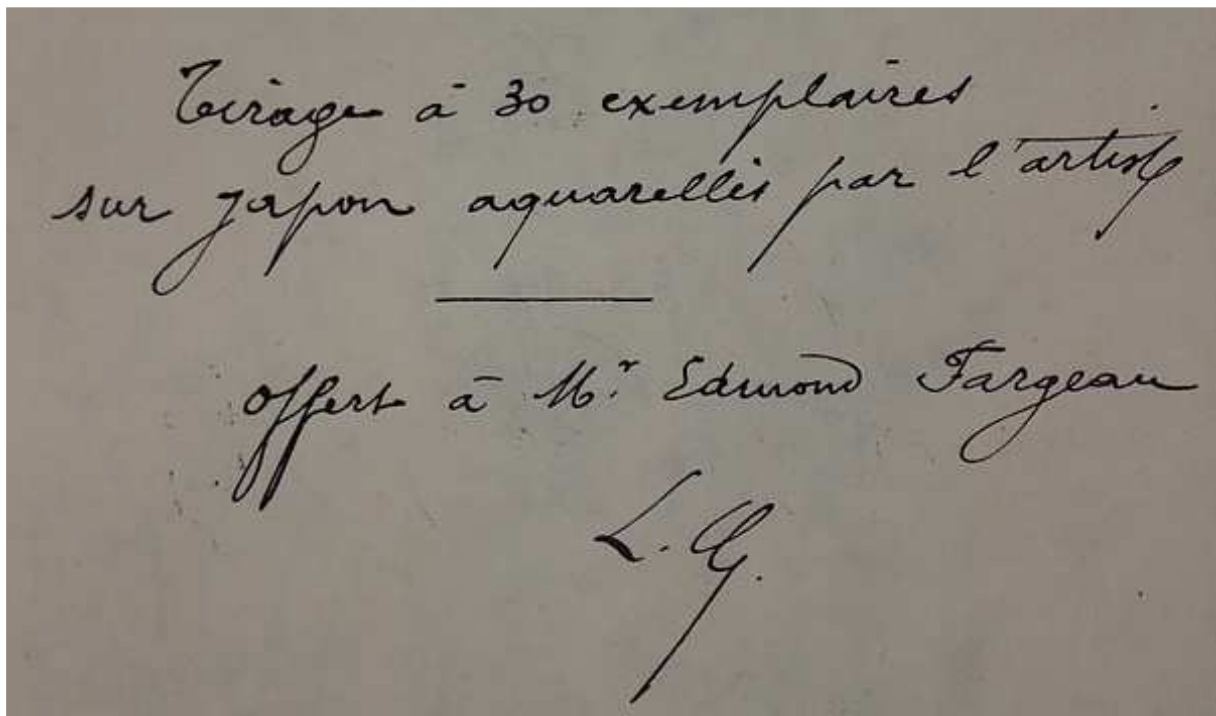 Tirage à 30 exemplaires
sur Japon aquarellés par l'artiste
offert à Mr. Edmond Fargeau
L. G.